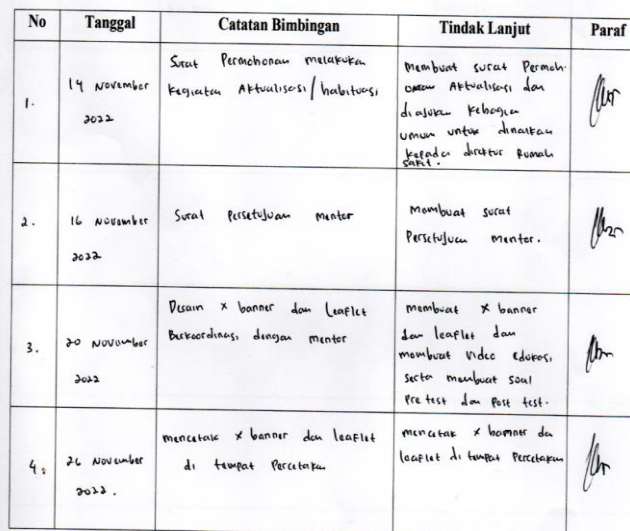 No Tanggal Catatan Bimbingan Tindak Lanjut Paraf
1.
14 November
2022
Surat Permohonan melakukan
kegiatan Aktualisasi/habituasi
Membuat surat Permoh-
onan Aktualisasi dan
diajukan kebagian
umum untuk dinaikan
kepada direktur Rumah
sakit.
2.
16 November
2022
Surat Persetujuan mentor
Membuat surat
Persetujuan mentor.
3.
20 November
2022
Desain x banner dan Leaflet
Berkoordinasi dengan mentor
membuat x banner
dan leaflet dan
membuat video edukasi
serta membuat soal
Pre test dan Post test.
4.
26 November
2022.
mencetak x banner dan leaflet
di tempat Percetakan
mencetak x banner dan
leaflet di tempat Percetakan